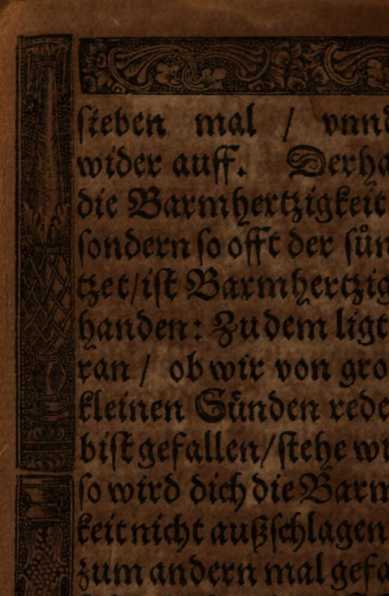 sieben mal / vnnd
wider auff. Derha
die Barmhertzigkeit
sondern so offt der sün
tzet/ist Barmhertzig
handen: Zu dem ligt
ran / ob wir von gro
kleinen Sünden rede
bist gefallen/stehe wi
so wird dich die Barm
keit nicht außschlagen
zum andern mal gefa